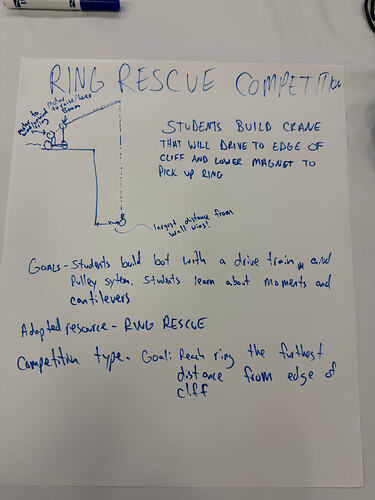 RING RESCUE COMPETITION
motor to raise/lower
Boom
motor to
STUDENTS BUILD CRANE
THAT WILL DRIVE TO EDGE OF
CLIFF AND LOWER MAGNET TO
PICK UP RING
largest distance from
wall wins!
Goals - Students build bot with a drive train and
Pulley sytem. Students learn about moments and
cantilevers
Adapted resource - RING RESCUE
Competition type - Goal: Reach ring the furthest
distance from edge of
cliff